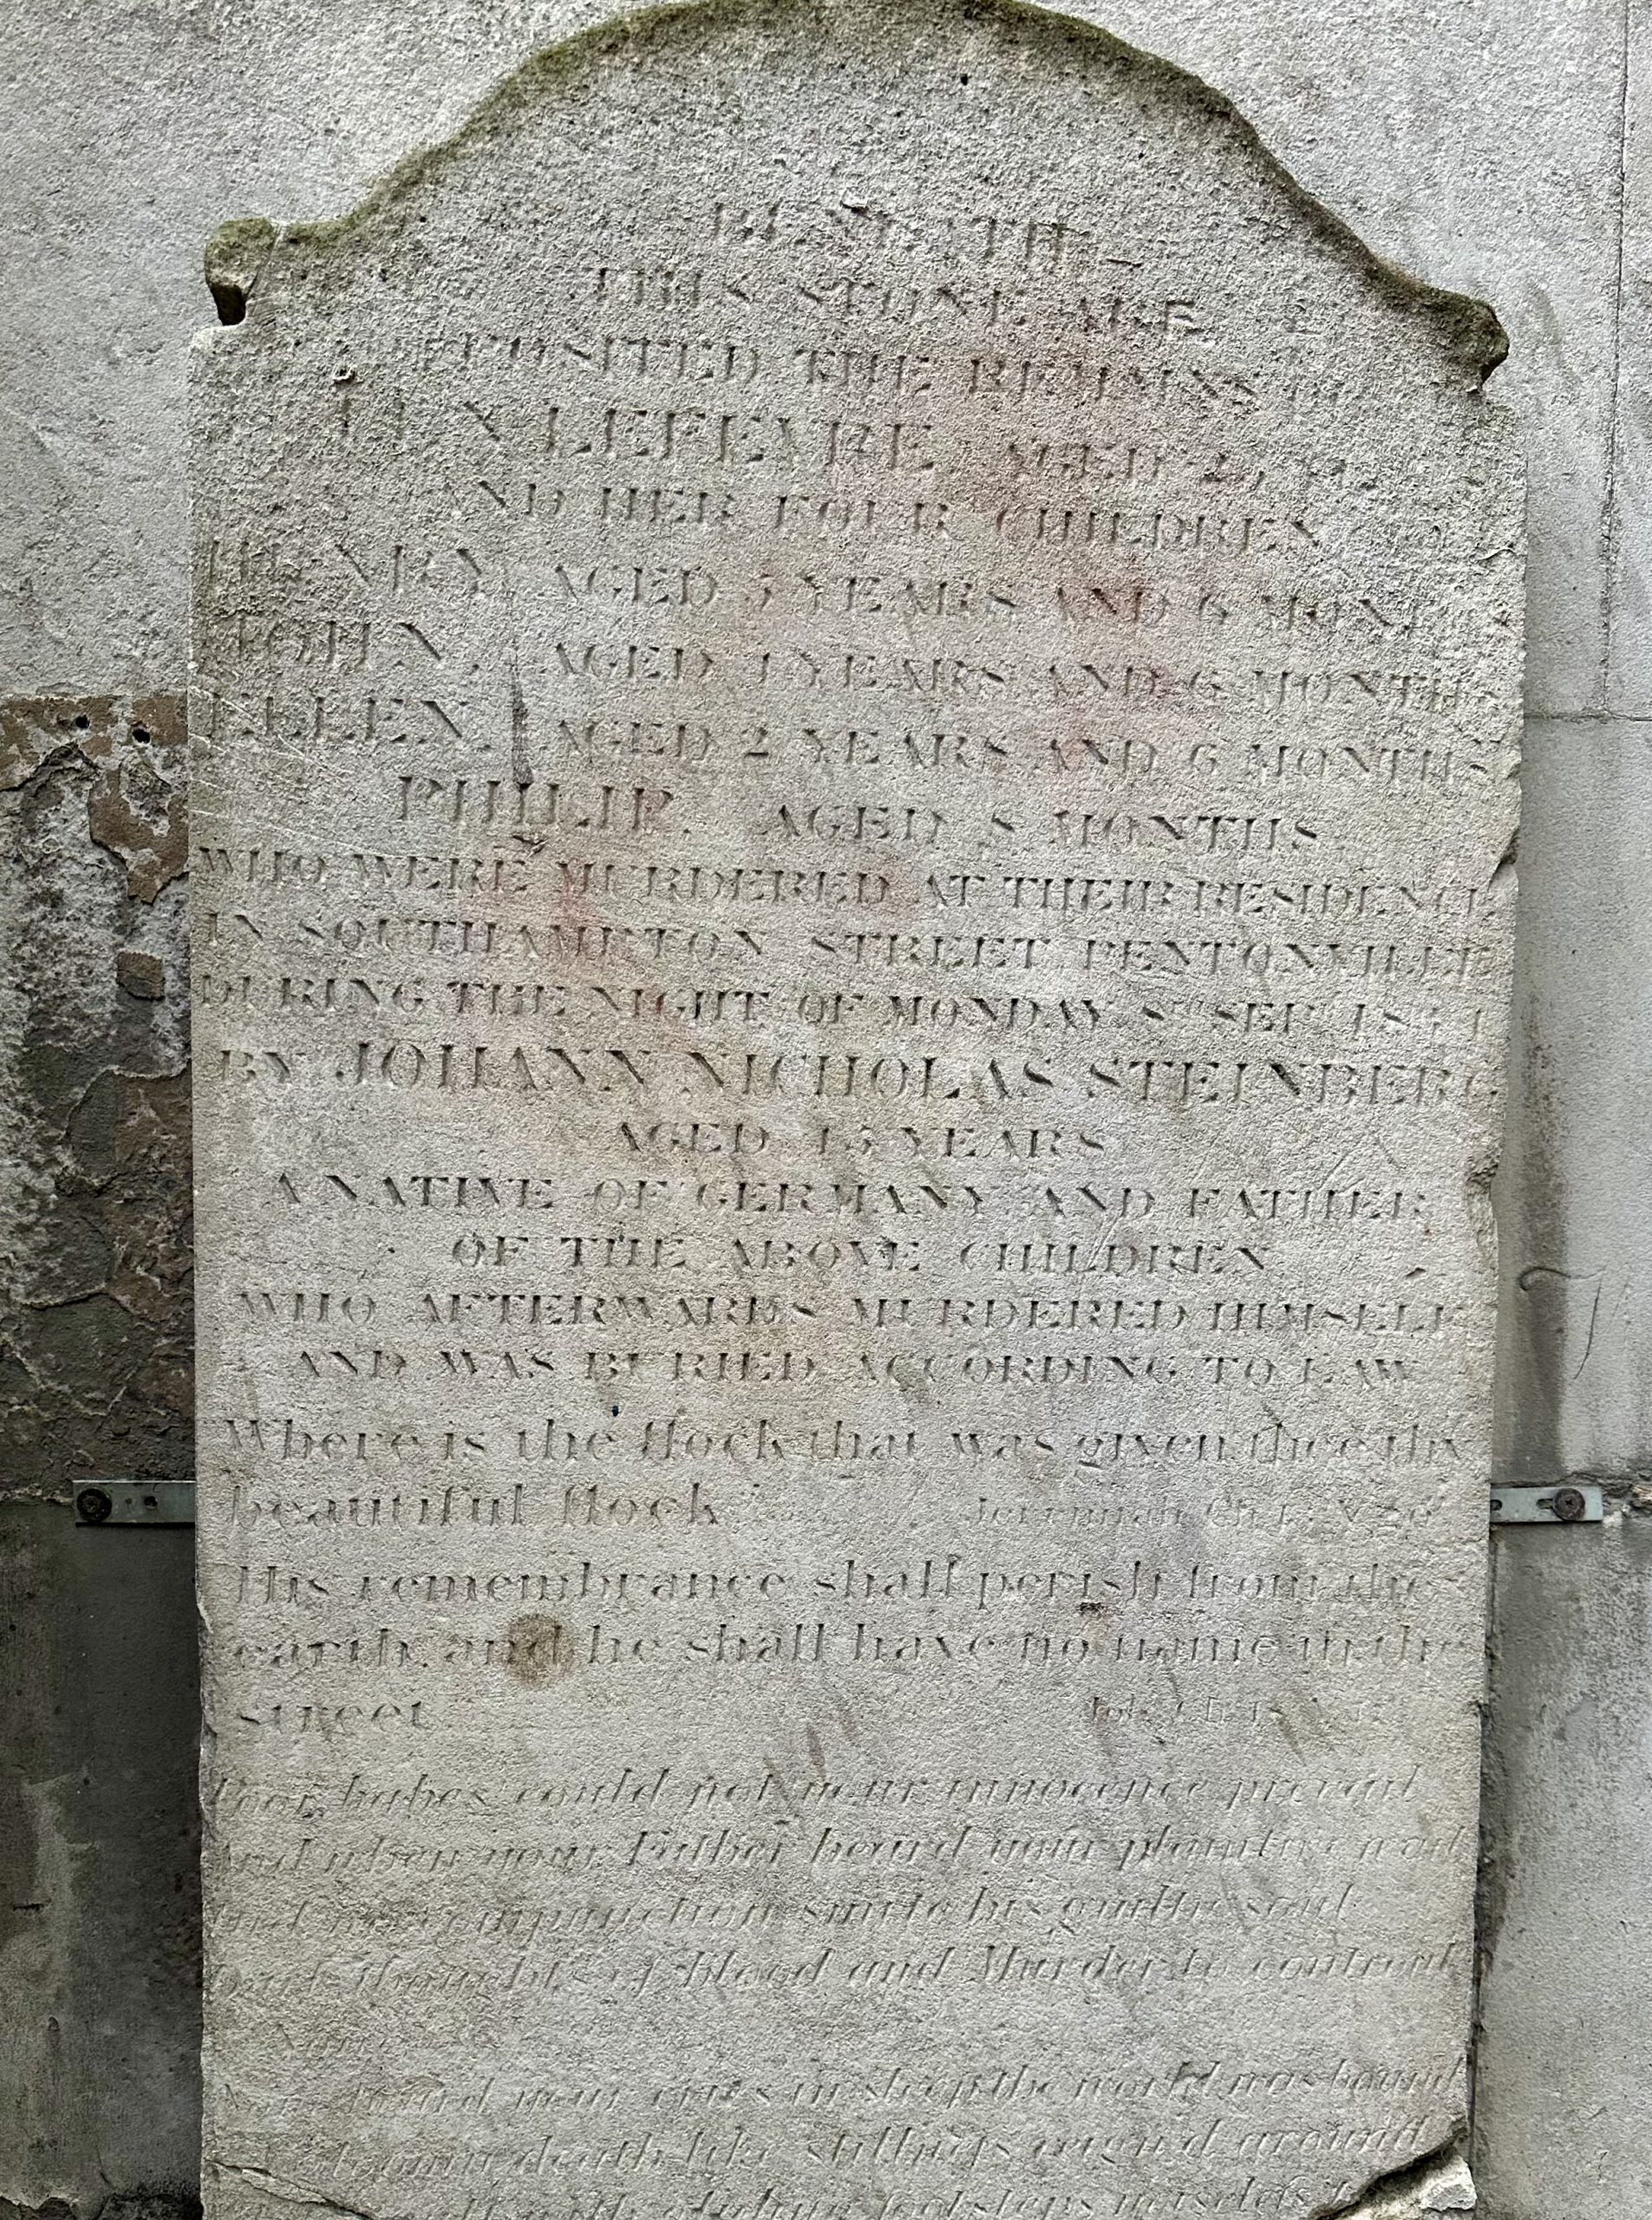 BENEATH
THIS STONE ARE
DEPOSITED THE REMAINS OF
ELLEN LEFEVRE AGED
AND HER FOUR CHILDREN
HENRY, AGED 5 YEARS AND 6 MONTHS
JOHN, AGED 4 YEARS AND 6 MONTHS
ELLEN, AGED 2 YEARS AND 6 MONTHS
PHILIP, AGED 8 MONTHS
WHO WERE MURDERED AT THEIR RESIDENCE
IN SOUTHAMPTON STREET PENTONVILLE
DURING THE NIGHT OF MONDAY 8TH SEP 1834
BY JOHANN NICHOLAS STEINBERG
AGED 45 YEARS
A NATIVE OF GERMANY AND FATHER
OF THE ABOVE CHILDREN
WHO AFTERWARDS MURDERED HIMSELF
AND WAS BURIED ACCORDING TO LAW
Where is the flock that was given thee thy
beautiful flock Jeremiah Ch V 20
His remembrance shall perish from the
earth, and he shall have no name in the
street Job Ch
Poor babes could not your innocence prevail
And when your Father heard your plaintive wail
Did no compunction smite his guilty soul
thoughts of blood and Murder to controul
heard your cries in sleep the world was bound
death like stillness reign'd around
footsteps